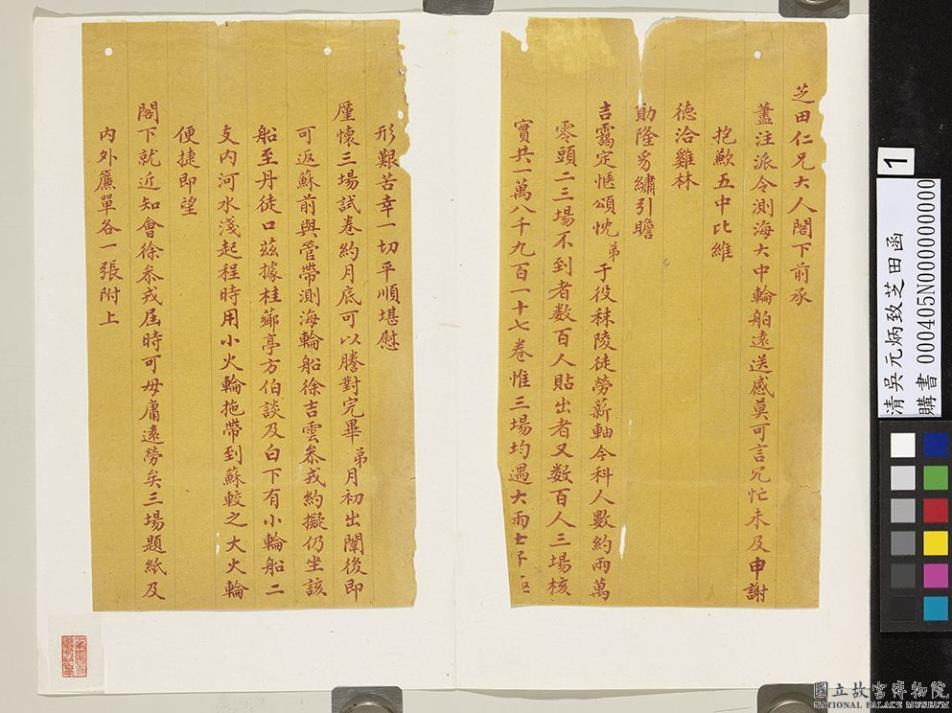 芝田仁兄大人閣下前承
藎注派令測海大中輪船遠送感莫可言冗忙未及申謝
抱歉五中比維
德洽雞林
勛隆豸繡引瞻
吉靄定愜頌忱弟于役秣陵徒勞薪軸今科人數約兩萬
零頭二三場不到者數百人貼出者又數百人三場核
實共一萬八千九百一十七卷惟三場均遇大雨士子
形艱苦幸一切平順堪慰
厪懷三場試卷約月底可以謄對完畢弟月初出闈後即
可返蘇前與管帶測海輪船徐吉雲參戎約擬仍坐該
船至丹徒口茲據桂薌亭方伯談及白下有小輪船二
支內河水淺起程時用小火輪拖帶到蘇較之大火輪
便捷即望
閣下就近知會徐參戎屆時可毋庸遠勞矣三場題紙及
內外簾單各一張附上
1
清吳元炳致芝田函
購書 000405N000000000
國立故宮博物院
NATIONAL PALACE MUSEUM